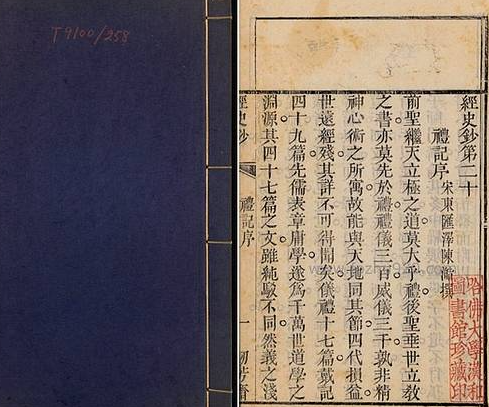 T9100/258
經史鈔第二十
禮記序 宋東匯澤陳澔撰
前聖繼天立極之道莫大乎禮後聖垂世立教
之書亦莫先於禮禮儀三百威儀三千孰非精
神心術之所寓故能與天地同其節四代損益
世遠經殘其詳不可得聞矣儀禮十七篇戴記
四十九篇先儒表章庸學遂為千萬世道學之
淵源其四十七篇之文雖純駁不同然義之淺
經史鈔
禮記序
一
哈佛大學漢和
圖書館珍藏印